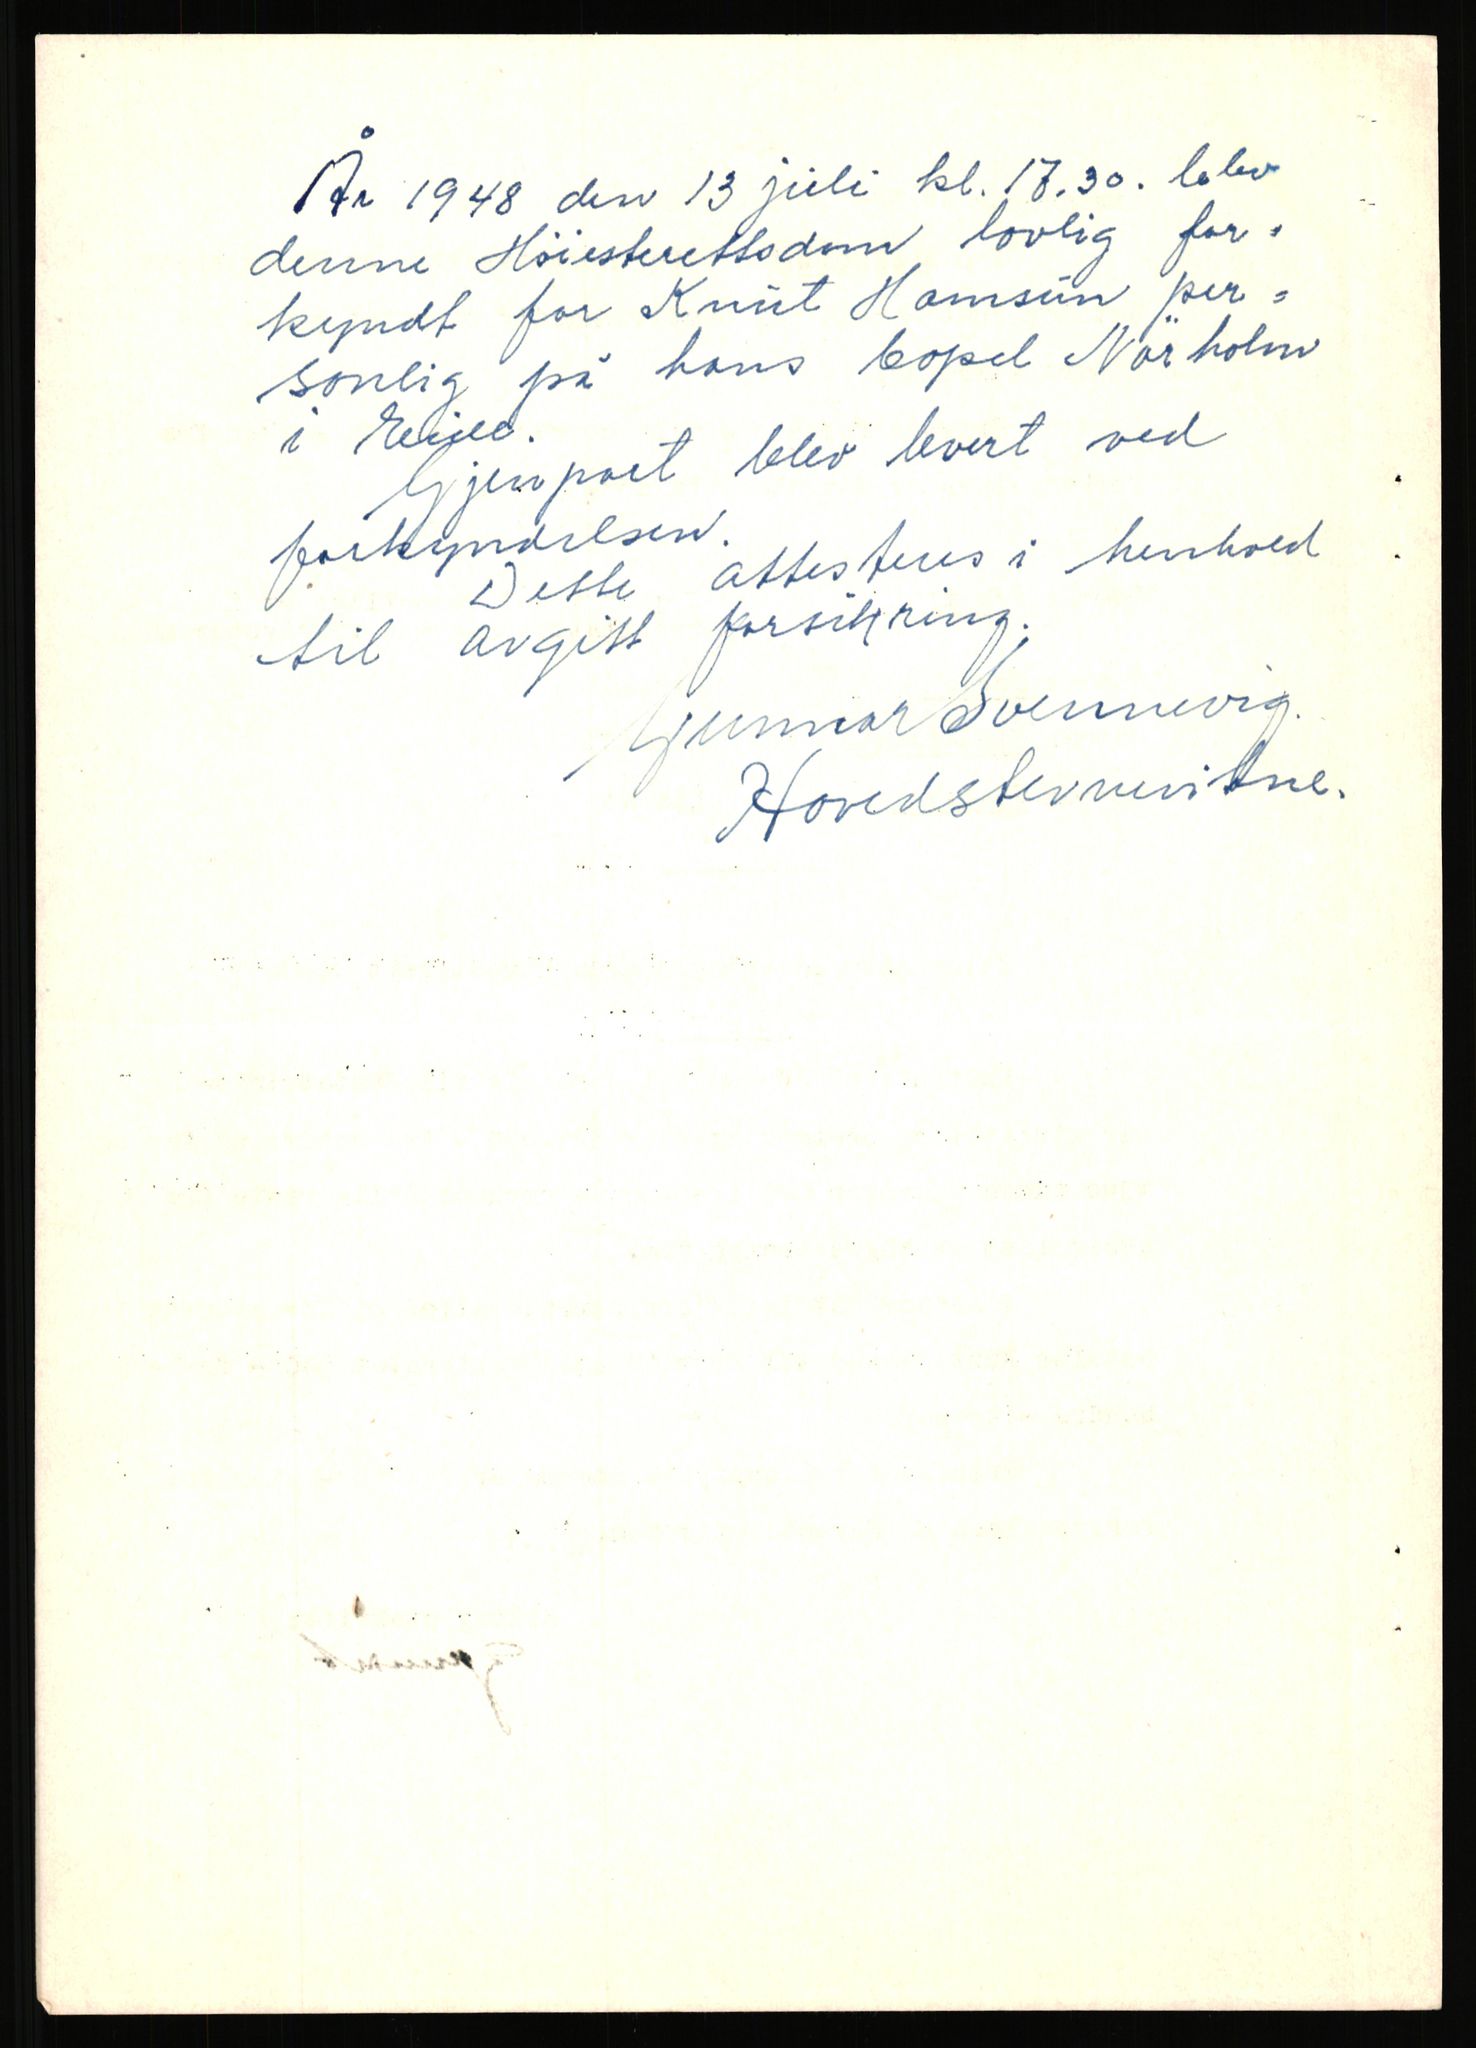 År 1948 den 13 juli kl. 17.30. blev
denne Höiesterettsdom lovlig for=
kyndt for Knut Hamsun per=
sonlig på hans bopel Nörholm
i Eide.
Gjenpart blev levert ved
forkyndelsen.
Dette attesteres i henhold
til avgitt forsikring.
Gunnar Svennevig.
Hovedstevnevitne.